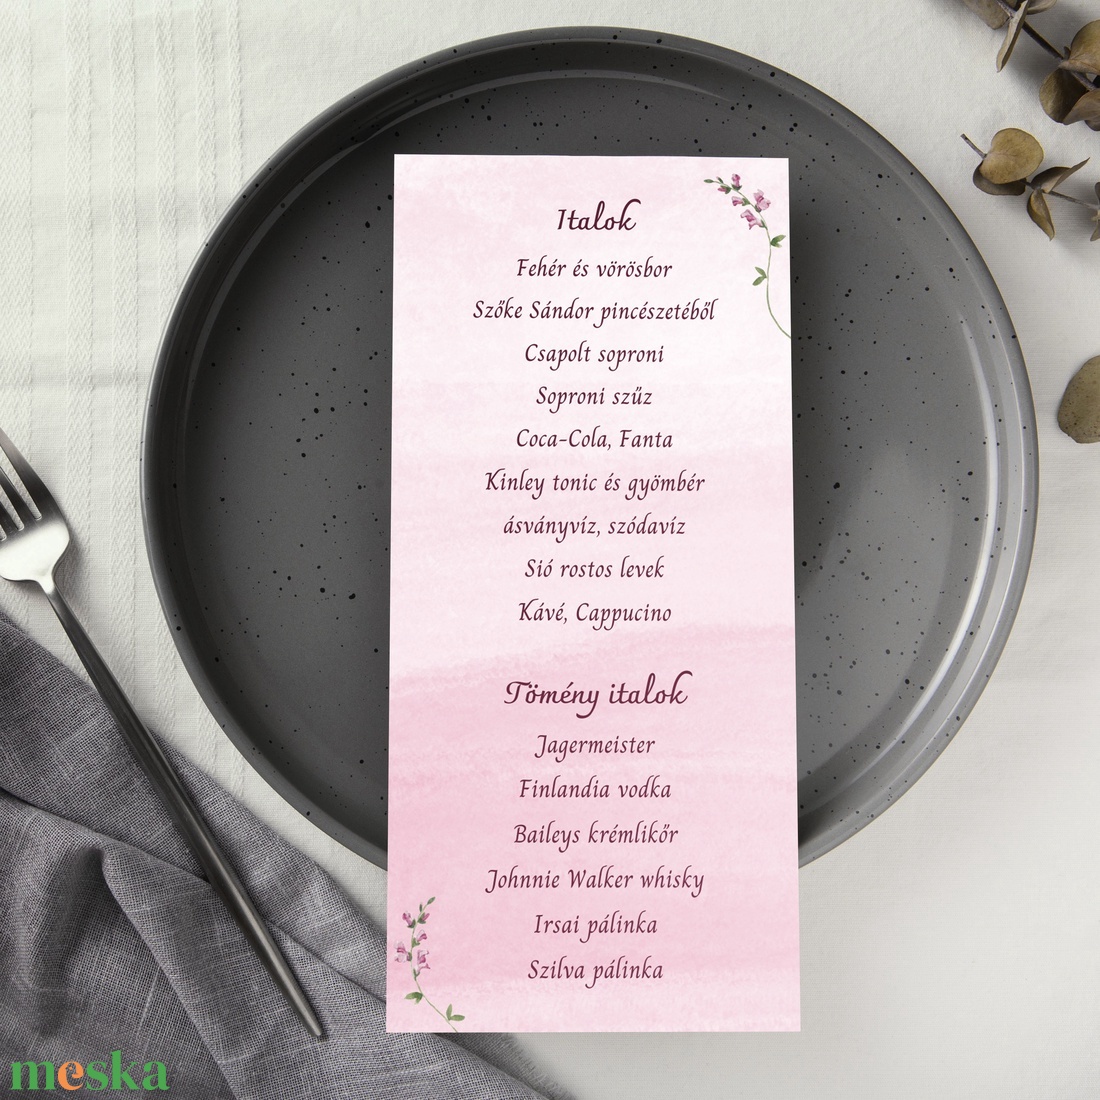 Italok
Fehér és vörösbor
Szőke Sándor pincészetéből
Csapolt soproni
Soproni szűz
Coca-Cola, Fanta
Kinley tonic és gyömbér
ásványvíz, szódavíz
Sió rostos levek
Kávé, Cappucino
Tömény italok
Jagermeister
Finlandia vodka
Baileys krémlikőr
Johnnie Walker whisky
Irsai pálinka
Szilva pálinka
meska